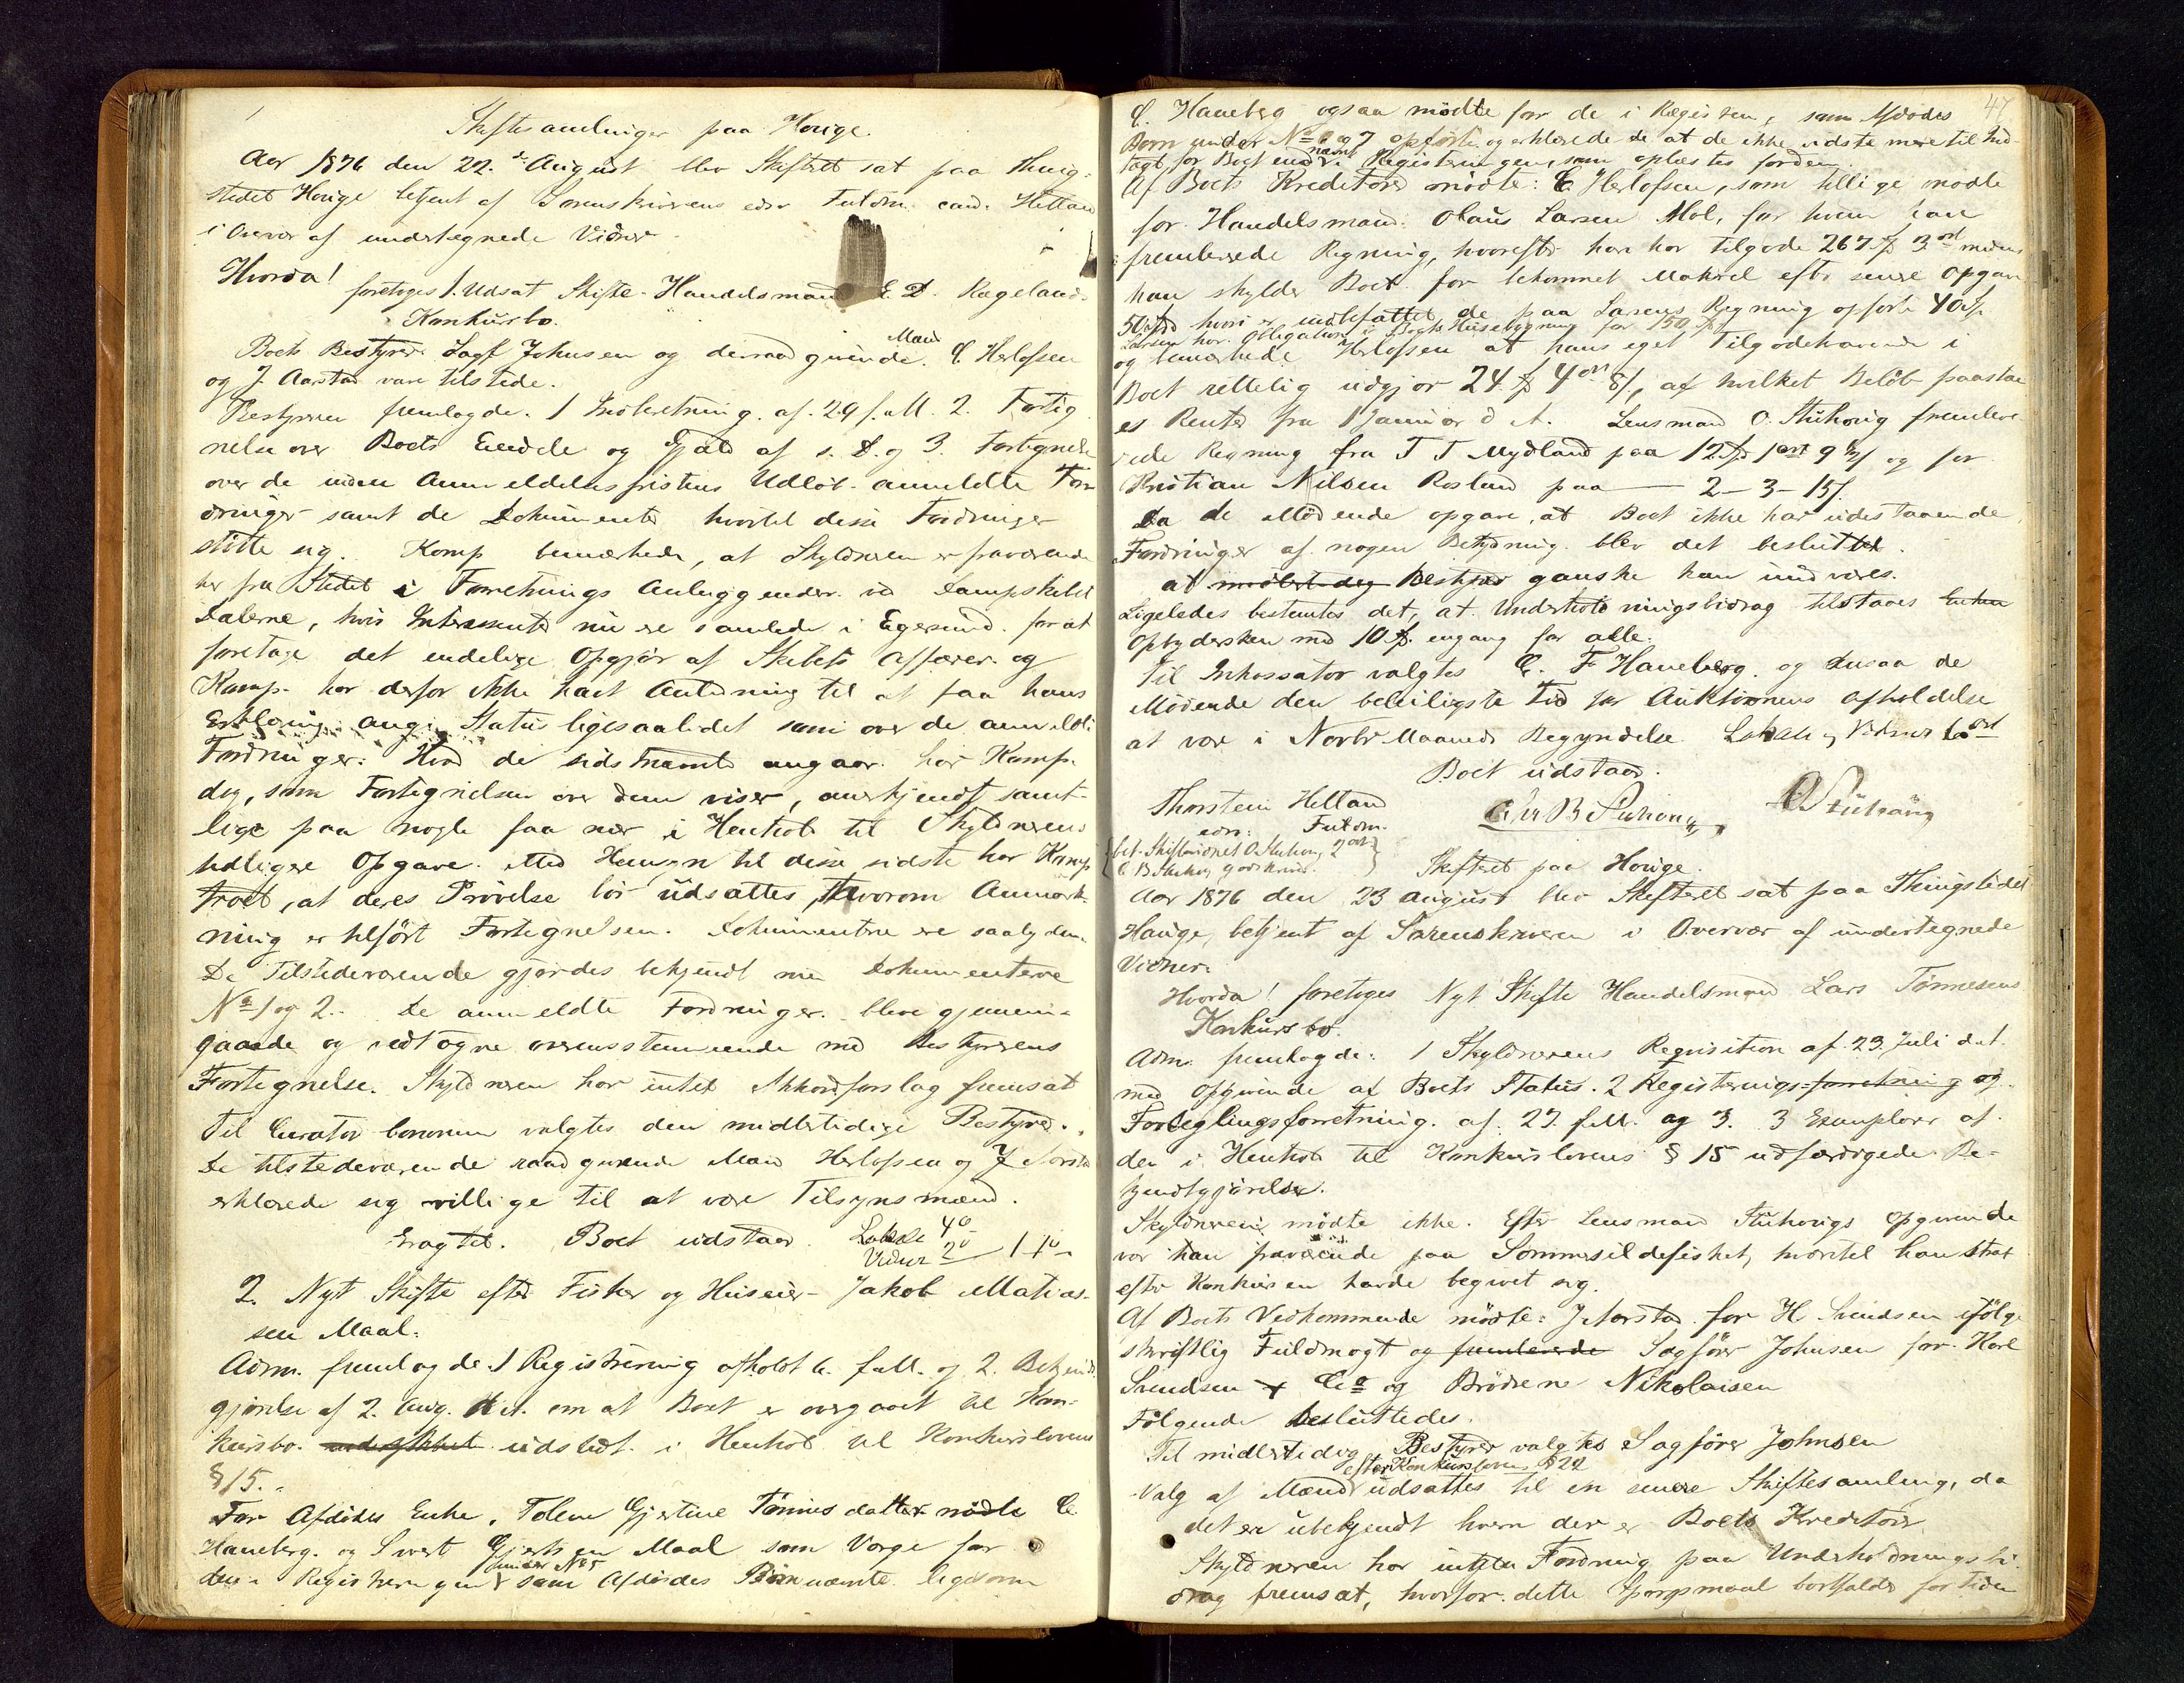 Skiftesamlinger paa Houge.
Aar 1876 den 22.de August blev Skifteret sat paa Thing-
stedet Houge betjent af Sorenskriverens edsv Fuldm. cand. Helland
i Overvær af undertegnede Vidner
Hvorda!
foretoges 1. Udsat Skifte - Handelsmand E. D. Rægelands
Konkursbo.
Boets Bestyrer Sagf Johnsen og de raadgivende Mænd C Herlofsen
og J. Aarstad vare tilstede.
Bestyreren fremlagde. 1 Indberetning. af. 29 f. M. 2. Forteg
nelse over Boets Eiendele og Gjæld af s. D. og 3. Fortegnelse
over de inden Anmeldelsesfristens Udløb anmeldte For
dringer samt de Dokumenter hvortil disse Fordringer
støtte sig. Komp bemærkede, at Skyldneren er fraværende
her fra Stedet i Forretnings Anliggender ved Dampskibet
Dalerne, hvis Interessenter nu ere samlede i Egersund for at
foretage det endelige Opgjør af Skibets Affærer og
Komp. har derfor ikke havt Anledning til at faa hans
Erklæring ang. Status ligesaalidet som over de anmeldte
Fordringer. Hvad de sidstnævnte angaar har Komp.
dog, som Fortegnelsen over dem viser, anerkjendt samt-
lige paa nogle faa nær i Henhold til Skyldnerens
tidligere Opgave. Med Hensyn til disse sidste har Komp
troet, at deres Prøvelse bør udsættes, hvorom Anmærk-
ning er tilført Fortegnelsen. Dokumenterne ere saalydende
De Tilstedeværende gjordes bekjendt med Dokumenterne
No 1 og 2. De anmeldte Fordringer. bleve gjennem-
gaaede og vedtagne overensstemmende med Bestyrerens
Fortegnelse. Skyldneren har intet Akkordforslag fremsat
Til Curator bonorum valgtes den midlertidige Bestyrer.
De tilstedeværende raadgivende Mænd Herlofsen og J Aarstad
erklærede sig villige til at være Tilsynsmænd.
Eragtet. Boet udstaar. Lokale 40
Vidner 20
2. Nyt Skifte efter Fisker og Huseier - Jakob Mathias-
sen Maal.
Adm. fremlagde 1 Registrering afholdt 6. f. M. og 2. Bekjendt
gjørelse af 2. Aug. d. A. om at Boet er overgaaet til Kon-
kursbo. udstedt i Henhold til Konkurslovens
§ 15.
For Afdødes Enke, Tolene Gjertine Tønnesdatter mødte C
Haneberg. og Sivert Gjertsen Maal som Værge for
den i Registreringen under No 5 som Afdødes Børn nævnte ligesom
47
C. Haneberg ogsaa mødte for de i Registren, som Afdødes
Børn under No 6 og 7 opførte og erklærede de at de ikke vidste mere til Ind
tægt for Boet end i Registreringen nævnt, som oplæstes for dem.
Af Boets Kreditorer mødte: C Herlofsen, som tillige mødte
for Handelsmand Olaus Larsen Mol, for hvem han
fremleverede Regning, hvorefter han har tilgode 267 Spd 3 ort medens
han skylder Boet for bekommet Makrel efter senere Opgave
50 Spd hvori er indbefattet de paa Larsens Regning opførte 40 Sp.
Larsen har Obligation i Boets Husebygning for 150 Spd
og bemærkede Herlofsen at hans eget Tilgodehavende i
Boet rettelig udgjør 24 Spd 4 ort 8 s, af hvilket Beløb paastaa
es Renter fra 1 Januar d A. Lensmand O. Stuhoug fremleve
rede Regning fra T T Mydland paa 12 Spd 1 ort 9 s og for
Kristian Nilsen Rosland paa — 2 - 3 - 15 s.
Da de Mødende opgave, at Boet ikke har udestaaende
Fordringer af nogen Betydning blev det besluttet.
at Bestyrer ganske kan undværes.
Ligeledes bestemtes det, at Underholdningsbidrag tilstaaes Enken
Opbydersken med 10 Spd. engang for alle.
Til Inkassator valgtes C. F Haneberg. og ansaa de
Mødende den beleiligste Tid for Auktionens Afholdelse
at være i Novbr Maaneds Begyndelse. Lokale og Vidner
Boet udstaar.
Thorstein Helland
edsv. Fuldm.
O Stuhaug
Skifteret paa Houge.
Aar 1876 den 23 august blev Skifteret sat paa Thingstedet
Hauge, betjent af Sorenskriveren i Overvær af undertegnede
Vidner.
Hvorda! foretoges Nyt Skifte Handelsmand Lars Tønnesens
Konkursbo.
Adm. fremlagde: 1 Skyldnerens Requisition af 23. Juli d. A.
med Opgivende af Boets Status. 2 Registrerings-forretning og
Forseglingsforretning. af. 27. f. M. og 3. 3 Exemplarer af
den i Henhold til Konkurslovens § 15 udfærdigede Be-
kjendtgjørelse.
Skyldneren mødte ikke. Efter Lensmand Stuhougs Opgivende
var han fraværende paa Sommersildefisket, hvortil han strax
efter Konkursen havde begivet sig.
Af Boets Vedkommende mødte: J Aarstad for H. Svendsen ifølge
skriftlig Fuldmagt og fremleverede Sagfører Johnsen for Karl
Svendsen & Co og Brødrene Nikolaisen
Følgende besluttedes.
Til midlertidig Bestyrer valgtes Sagfører Johnsen
Valg af Mænd efter Konkurslovens § 22 udsattes til en senere Skiftesamling, da
det er ubekjendt hvem der er Boets Kreditorer
Skyldneren har ingen Fordring paa Underholdningsbi-
drag fremsat, hvorfor dette Spørgsmaal bortfalder for Tiden